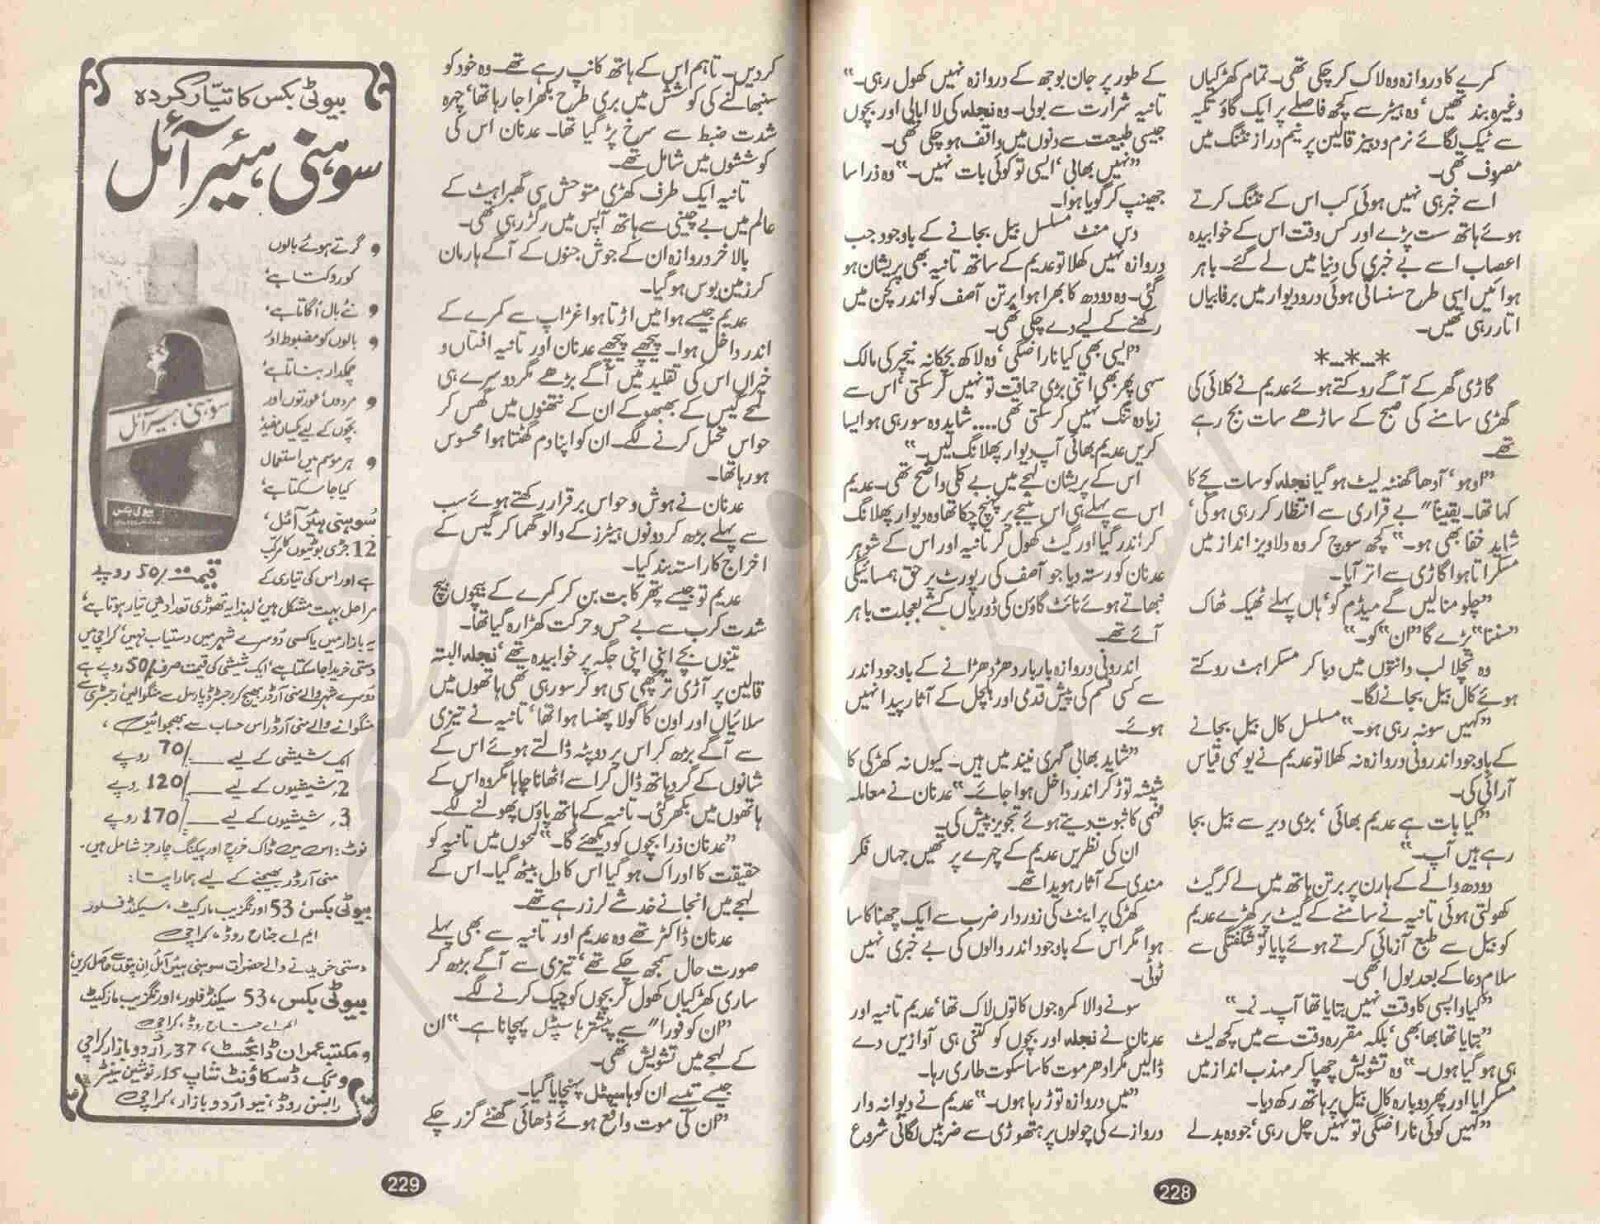 کمرے کا دروازہ وہ لاک کر چکی تھی۔ تمام کھڑکیاں
وغیرہ بند تھیں، وہ ہیٹر سے کچھ فاصلے پر ایک گاؤ تکیہ
سے ٹیک لگائے نرم و دبیز قالین پر نیم دراز نٹنگ میں
مصروف تھی۔
اسے خبر ہی نہیں ہوئی کب اس کے نٹنگ کرتے
ہوئے ہاتھ ست پڑے اور کس وقت اس کے خوابیدہ
اعصاب اسے بے خبری کی دنیا میں لے گئے۔ باہر
ہوائیں اسی طرح سنسناتی ہوئی در و دیوار میں برفابیاں
اتار رہی تھیں۔
*_*_*
گاڑی گھر کے آگے روکتے ہوئے عدیم نے کلائی کی
گھڑی سامنے کی صبح کے ساڑھے سات بج رہے
تھے۔
"اوہو، آدھا گھنٹہ لیٹ ہو گیا نجلہ کو سات بجے کا
کہا تھا۔ یقیناً" بے قراری سے انتظار کر رہی ہوگی،
شاید خفا بھی ہو۔" کچھ سوچ کر وہ دلاویز انداز میں
مسکراتا ہوا گاڑی سے اتر آیا۔
"چلو منالیں گے میڈم کو، ہاں پہلے ٹھیک ٹھاک
"سننا" پڑے گا "ان" کو۔"
وہ نچلا لب دانتوں میں دبا کر مسکراہٹ روکتے
ہوئے کال بیل بجانے لگا۔
"کہیں سو نہ رہی ہو۔" مسلسل کال بیل بجانے
کے باوجود اندرونی دروازہ نہ کھلا تو عدیم نے یونہی قیاس
آرائی کی۔
"کیا بات ہے عدیم بھائی، بڑی دیر سے بیل بجا
رہے ہیں آپ۔"
دودھ والے کے ہارن پر برتن ہاتھ میں لے کر گیٹ
کھولتی ہوئی تانیہ نے سامنے کے گیٹ پر کھڑے عدیم
کو بیل سے طبع آزمائی کرتے ہوئے پایا تو شگفتگی سے
سلام دعا کے بعد بول اٹھی۔
"کیا واپسی کا وقت نہیں بتایا تھا آپ نے۔"
"بتایا تھا بھابھی، بلکہ مقررہ وقت سے میں کچھ لیٹ
ہی ہو گیا ہوں۔" وہ تشویش چھپا کر مہذب انداز میں
مسکرایا اور پھر دوبارہ کال بیل پر ہاتھ رکھ دیا۔
"کہیں کوئی ناراضگی تو نہیں چل رہی، جو وہ بدلے
کے طور پر جان بوجھ کے دروازہ نہیں کھول رہی۔"
تانیہ شرارت سے بولی۔ وہ نجلہ کی لاابالی اور بچوں
جیسی طبیعت سے دنوں میں واقف ہو چکی تھی۔
"نہیں بھابی، ایسی تو کوئی بات نہیں۔" وہ ذرا سا
جھینپ کر گویا ہوا۔
دس منٹ مسلسل بیل بجانے کے باوجود جب
دروازہ نہیں کھلا تو عدیم کے ساتھ تانیہ بھی پریشان ہو
گئی۔ وہ دودھ کا بھرا ہوا برتن آصف کو اندر کچن میں
رکھنے کے لیے دے چکی تھی۔
"ایسی بھی کیا ناراضگی، وہ لاکھ بچکانہ نیچر کی مالک
سہی پھر بھی اتنی بڑی حماقت تو نہیں کر سکتی، اس سے
زیادہ تنگ نہیں کر سکتی تھی.... شاید وہ سو رہی ہو ایسا
کریں عدیم بھائی آپ دیوار پھلانگ لیں۔"
اس کے پریشان لہجے میں بے کلی واضح تھی۔ عدیم
اس سے پہلے ہی اس نتیجے پر پہنچ چکا تھا وہ دیوار پھلانگ
کر اندر گیا اور گیٹ کھول کر تانیہ اور اس کے شوہر
عدنان کو رستہ دیا جو آصف کی رپورٹ پر حق ہمسائیگی
نبھاتے ہوئے نائٹ گاؤن کی ڈوریاں کستے بعجلت باہر
آئے تھے۔
اندرونی دروازہ بار بار دھڑ دھڑانے کے باوجود اندر
سے کسی قسم کی پیش قدمی اور ہلچل کے آثار پیدا نہیں
ہوئے۔
"شاید بھابی گہری نیند میں ہیں۔ کیوں نہ کھڑکی کا
شیشہ توڑ کر اندر داخل ہوا جائے۔" عدنان نے معاملہ
فہمی کا ثبوت دیتے ہوئے تجویز پیش کی۔
ان کی نظریں عدیم کے چہرے پر تھیں جہاں فکر
مندی کے آثار ہویدا تھے۔
کھڑکی پر اینٹ کی زوردار ضرب سے ایک چھناکا سا
ہوا مگر اس کے باوجود اندر والوں کی بے خبری نہیں
ٹوٹی۔
سونے والا کمرہ جوں کا توں لاک تھا، عدیم تانیہ اور
عدنان نے نجلہ اور بچوں کو کتنی ہی آوازیں دے
ڈالیں مگر ادھر موت کا سا سکوت طاری رہا۔
"میں دروازہ توڑ رہا ہوں۔" عدیم نے دیوانہ وار
دروازے کی چولوں پر ہتھوڑی سے ضربیں لگانی شروع
228
کر دیں۔ تاہم اس کے ہاتھ کانپ رہے تھے۔ وہ خود کو
سنبھالنے کی کوشش میں بری طرح بکھرا جا رہا تھا، چہرہ
شدت ضبط سے سرخ پڑ گیا تھا۔ عدنان اس کی
کوششوں میں شامل تھے۔
تانیہ ایک طرف کھڑی متوحش سی گھبراہٹ کے
عالم میں بے چینی سے ہاتھ آپس میں رگڑ رہی تھی۔
بالا خر دروازہ ان کے جوش جنوں کے آگے ہار مان
کر زمین بوس ہو گیا۔
عدیم جیسے ہوا میں اڑتا ہوا غڑاپ سے کمرے کے
اندر داخل ہوا۔ پیچھے پیچھے عدنان اور تانیہ افتاں و
خیزاں اس کی تقلید میں آگے بڑھے مگر دوسرے ہی
لمحے گیس کے بھبھوکے ان کے نتھنوں میں گھس کر
حواس مختل کرنے لگے۔ ان کو اپنا دم گھٹتا ہوا محسوس
ہو رہا تھا۔
عدنان نے ہوش و حواس برقرار رکھتے ہوئے سب
سے پہلے بڑھ کر دونوں ہیٹرز کے والو گھما کر گیس کے
اخراج کا راستہ بند کیا۔
عدیم تو جیسے پتھر کا بت بن کر کمرے کے بیچوں بیچ
شدت کرب سے بے حس و حرکت کھڑا رہ گیا تھا۔
تینوں بچے اپنی اپنی جگہ پر خوابیدہ تھے، نجلہ البتہ
قالین پر آڑی ترچھی سی ہو کر سو رہی تھی ہاتھوں میں
سلائیاں اور اون کا گولا پھنسا ہوا تھا، تانیہ نے تیزی
سے آگے بڑھ کر اس پر دوپٹہ ڈالتے ہوئے اس کے
شانوں کے گرد ہاتھ ڈال کر اسے اٹھانا چاہا مگر وہ اس کے
ہاتھوں میں بکھر گئی۔ تانیہ کے ہاتھ پاؤں پھولنے لگے۔
"عدنان ذرا بچوں کو دیکھئے گا۔" لمحوں میں تانیہ کو
حقیقت کا ادراک ہو گیا اس کا دل بیٹھ گیا۔ اس کے
لہجے میں انجانے خدشے لرز رہے تھے۔
عدنان ڈاکٹر تھے وہ عدیم اور تانیہ سے بھی پہلے
صورت حال سمجھ چکے تھے، تیزی سے آگے بڑھ کر
ساری کھڑکیاں کھول کر بچوں کو چیک کرنے لگے۔
"ان کو فورا" سے پیشتر ہاسپٹل پہچانا ہے۔" ان
کے لہجے میں تشویش تھی۔
جیسے تیسے ان کو ہاسپٹل پہنچایا گیا۔
"ان کی موت واقع ہوئے ڈھائی گھنٹے گزر چکے
229
بیوٹی بکس کا تیار کردہ
سوہنی ہیئر آئل
گرتے ہوئے بالوں
کو روکتا ہے،
نئے بال اگاتا ہے،
بالوں کو مضبوط اور
چمکدار بناتا ہے،
مردوں، عورتوں اور
بچوں کے لیے یکساں مفید،
ہر موسم میں استعمال
کیا جا سکتا ہے،
سوہنی ہیئر آئل
بیوٹی بکس
قیمت /50 روپے
سوہنی ہیئر آئل،
12 جڑی بوٹیوں کا مرکب
ہے اور اس کی تیاری کے
مراحل بہت مشکل ہیں، لہذا یہ تھوڑی تعداد میں تیار ہوتا ہے،
یہ بازار میں یا کسی دوسرے شہر میں دستیاب نہیں، کراچی میں
دستی خریدا جا سکتا ہے، ایک شیشی کی قیمت صرف /50 روپے ہے
دوسرے شہر والے منی آرڈر بھیج کر رجسٹرڈ پارسل سے منگوالیں، رجسٹری سے
منگوانے والے منی آرڈر اس حساب سے بھجوائیں،
ایک شیشی کے لیے ___ /70 روپے
2، شیشیوں کے لیے ___ /120 روپے
3، شیشیوں کے لیے ___ /170 روپے
نوٹ: اس میں ڈاک خرچ اور پیکنگ چارجز شامل ہیں۔
منی آرڈر بھیجنے کے لیے ہمارا پتا:
بیوٹی بکس، 53 اورنگزیب مارکیٹ، سیکنڈ فلور
ایم اے جناح روڈ، کراچی
دستی خریدنے والے حضرات سوہنی ہیئر آئل ان پتوں سے حاصل کریں،
بیوٹی بکس، 53 سیکنڈ فلور، اورنگزیب مارکیٹ
ایم اے جناح روڈ، کراچی
مکتبہ عمران ڈائجسٹ، 37، اردو بازار کراچی
رابسن روڈ، نیو اردو بازار، کراچی